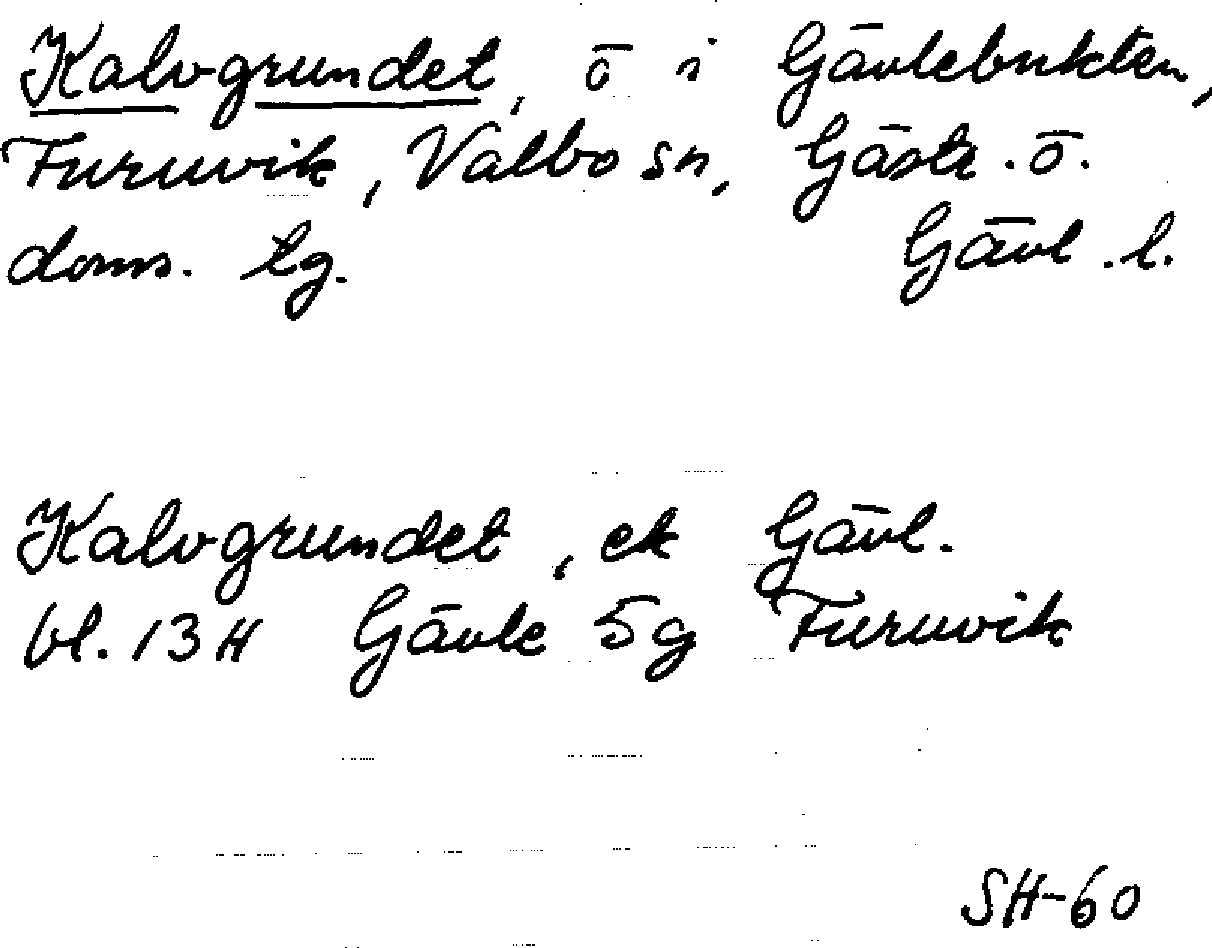 Kalvgrundet, ö i Gävlebukten,
Furuvik, Valbo sn, Gästr. ö.
doms. lg. Gävl. l.
Kalvgrundet, ek Gävl.
bl. 13H Gävle 5g Furuvik
SH-60